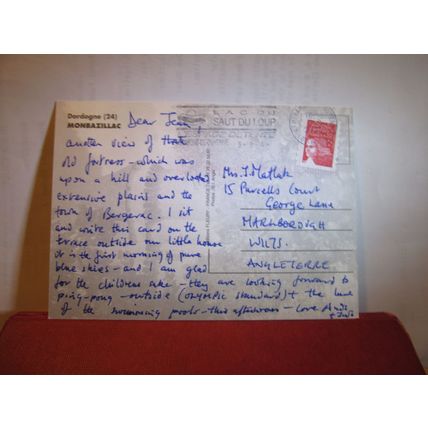 Dordogne (24)
MONBAZILLAC
Dear Jean,
another view of that
old fortress – which was
upon a hill and overlooked
extensive plains and the
town of Bergerac. I sit
and write this card on the
terrace outside our little house
it is the first morning of pure
blue skies – and I am glad
for the childrens sake – they are looking forward to
ping-pong – outside (olympic standard) + the
of the swimming pools – this afternoon – Love
LAC DU
SAUT DU LOUP
Mrs. J. Matlak
15 Purcells Court
George Lane
MARLBOROUGH
WILTS.
ANGLETERRE